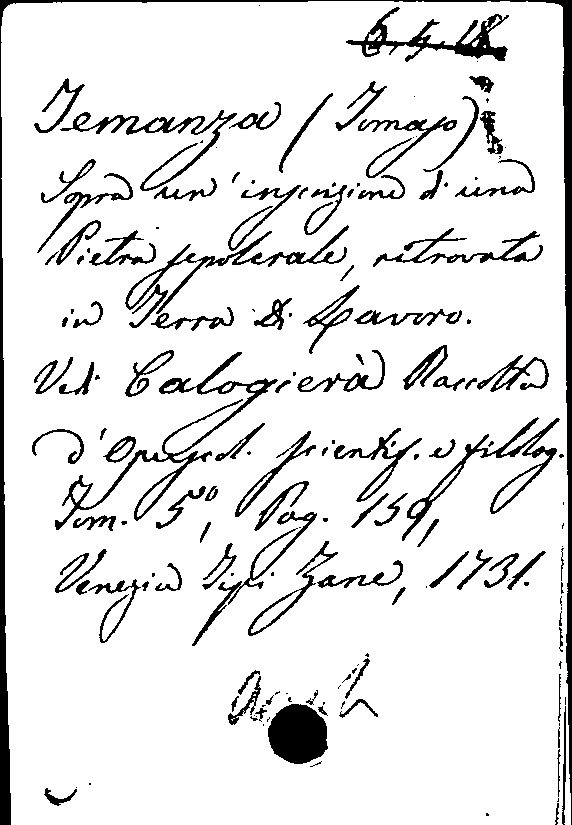 6.4.18
Temanza (Tomaso)
Sopra un' inscrizione di una
Pietra sepolcrale, ritrovata
in Terra di Lavoro.
Vedi Calogierà Raccolta
d'Opuscol. scientif. e filolog.
Tom. 5º, Pag. 159,
Venezia Tipi Zane, 1731.